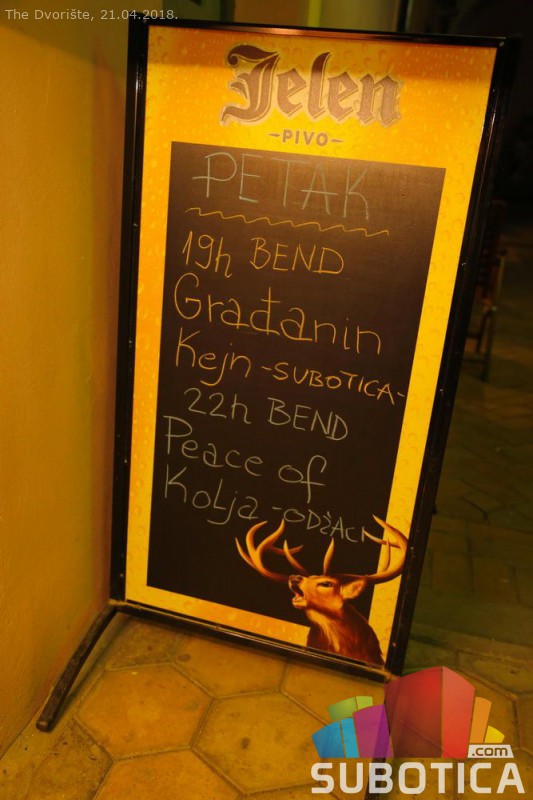 The Dvorište, 21.04.2018.
Jelen
-PIVO-
PETAK
19h BEND
Građanin
Kejn -SUBOTICA-
22h BEND
Peace of
Kolja -ODŽACI
.com
SUBOTICA